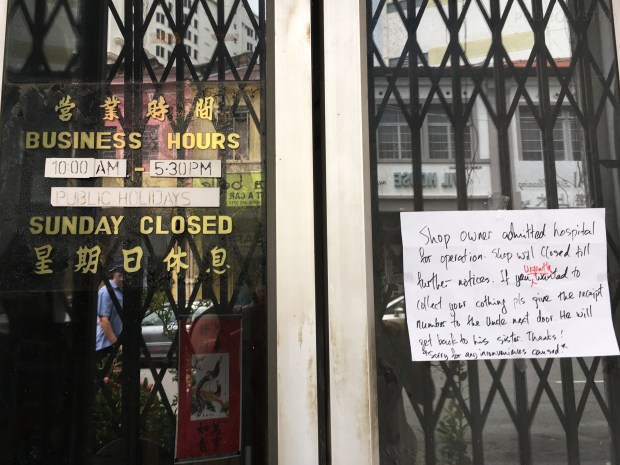 營業時間
BUSINESS HOURS
10:00 AM - 5:30 PM
PUBLIC HOLIDAYS
SUNDAY CLOSED
星期日休息
Shop owner admitted hospital
for operation. Shop will closed till
further notices. If you urgently wanted to
collect your cothing pls give the receipt
number to the Uncle next door. He will
get back to his sister. Thanks!
*Sorry for any inconveniences caused*